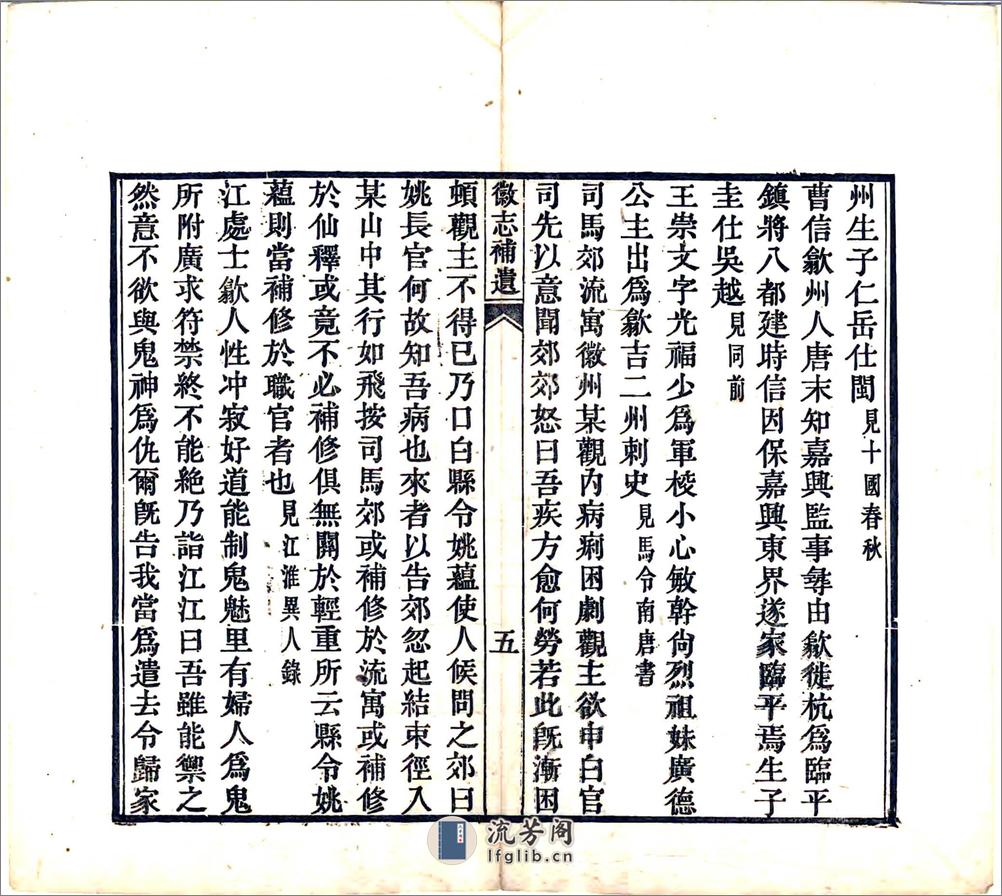 州生子仁岳仕閩見十國春秋
曹信歙州人唐末知嘉興監事尋由歙徙杭爲臨平
鎮將八都建時信因保嘉興東界遂家臨平焉生子
圭仕吳越見同前
王崇文字光福少爲軍校小心敏幹尙烈祖妹廣德
公主出爲歙吉二州刺史見馬令南唐書
司馬郊流寓徽州某觀內病痢困劇觀主欲申白官
司先以意聞郊郊怒曰吾疾方愈何勞若此旣漸困
徽志補遺
五
頓觀主不得已乃口白縣令姚蘊使人候問之郊曰
姚長官何故知吾病也來者以告郊忽起結束徑入
某山中其行如飛按司馬郊或補修於流寓或補修
於仙釋或竟不必補修俱無關於輕重所云縣令姚
蘊則當補修於職官者也見江淮異人錄
江處士歙人性冲寂好道能制鬼魅里有婦人爲鬼
所附廣求符禁終不能絶乃詣江江曰吾雖能禦之
然意不欲與鬼神爲仇爾旣告我當爲遣去令歸家
流芳阁
lfglib.cn